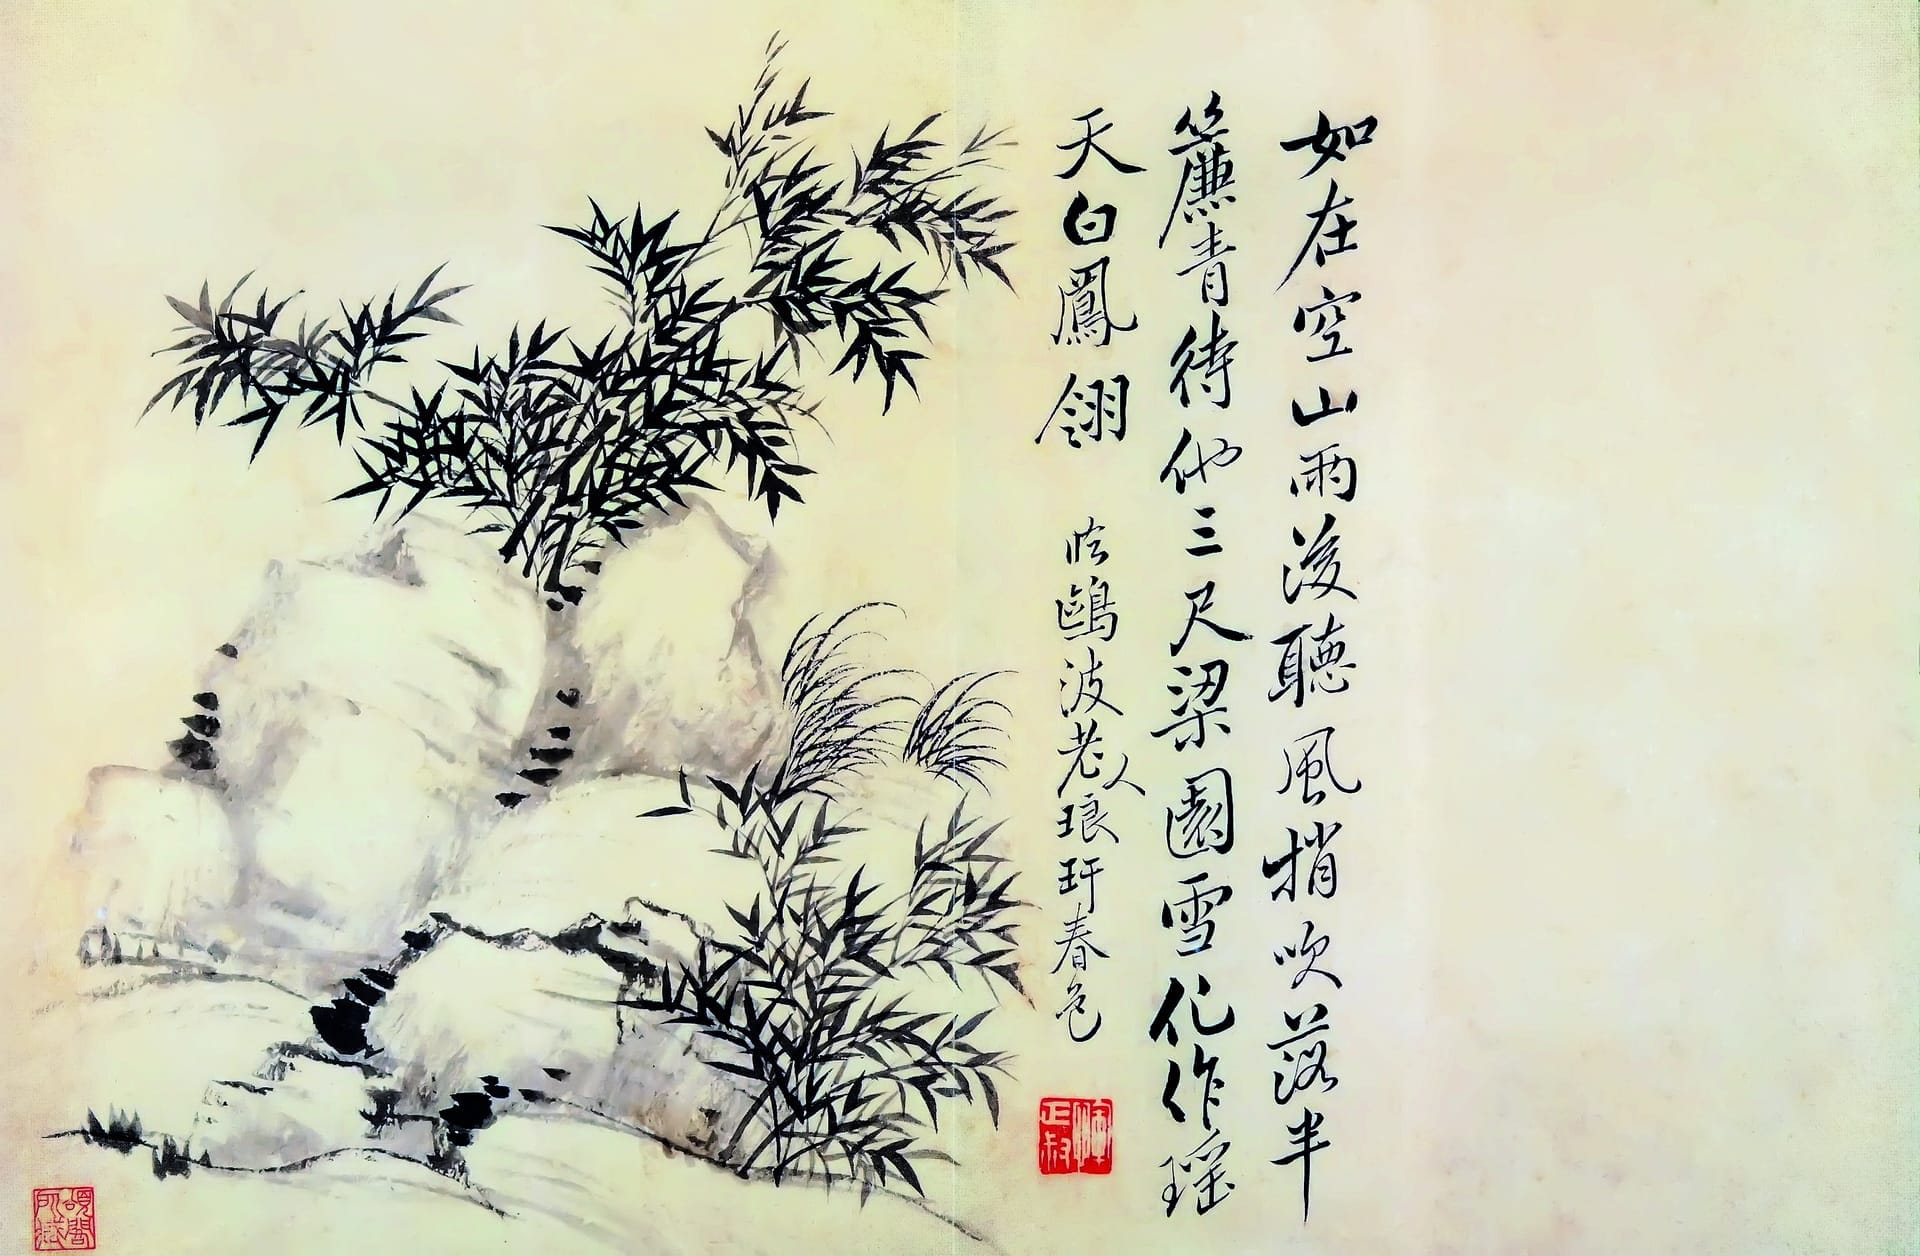 如在空山雨後聽風梢吹落半
簾青待他三尺梁園雪化作瑤
天白鳳翎
臨鷗波老人琅玕春色
惲正叔
頌閣所藏